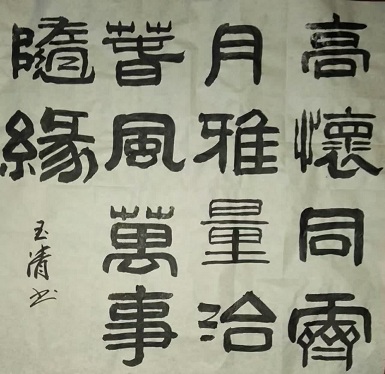 高懷同霽
月雅量洽
春風萬事
隨緣
玉清书